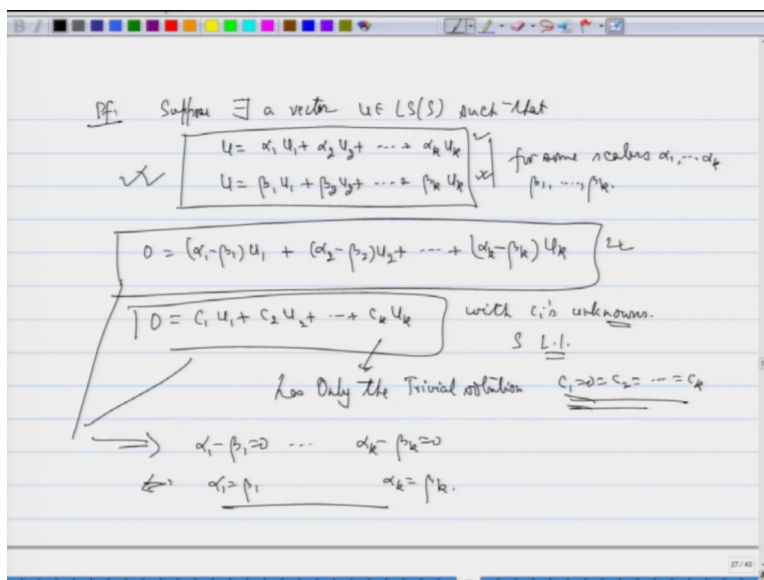 Pf: Suppose ∃ a vector u ∈ LS(S) such that
u = α₁u₁ + α₂u₂ + ---- + αₖuₖ
u = β₁u₁ + β₂u₂ + ---- + βₖuₖ
for some scalars α₁, ... αₖ
β₁, ..., βₖ.
0 = (α₁-β₁)u₁ + (α₂-β₂)u₂ + ---- + (αₖ-βₖ)uₖ
0 = c₁u₁ + c₂u₂ + --- + cₖuₖ with cᵢ's unknowns.
S L.I.
has Only the Trivial solution c₁=0=c₂= --- =cₖ
⟹ α₁-β₁=0 ... αₖ-βₖ=0
α₁=β₁ αₖ=βₖ.
27/43